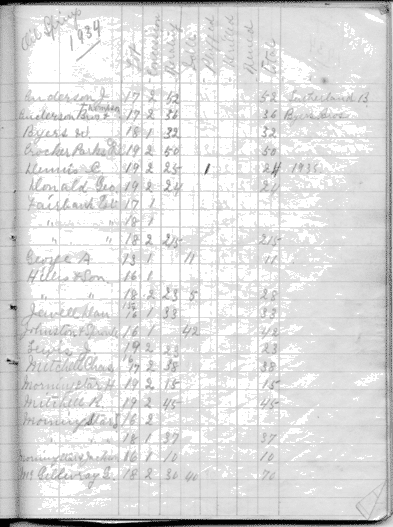 Oil Springs
1934
Lot Concession Rental Total
Anderson J 17 2 52 52 Sutherland B.
Anderson Bros & 17 2 36 36 Byers Bros
Byers W. 18 1 32 32
Crocker Parks 19 2 50 50
Dennis C 19 2 25 1 24 1935
Donald Geo. 19 2 24 24
Fairbank Est. 17 1
" " 18 1
" " 18 2 215 215
George A. 13 1 11 11
Hillis & Son 16 1
" " 18 2 23 5 28
Jewell Alan 16 1 33 33
Johnston & 16 1 42 42
19 2 23 23
Mitchell Chas 17 2 38 38
Morningstar H. 19 2 15 15
Mitchell R 19 2 45 45
Morningstar J 16 2
" " 18 1 37 37
Morningstar & Jackson 16 1 10 10
McGillivray D. 18 2 30 40 70